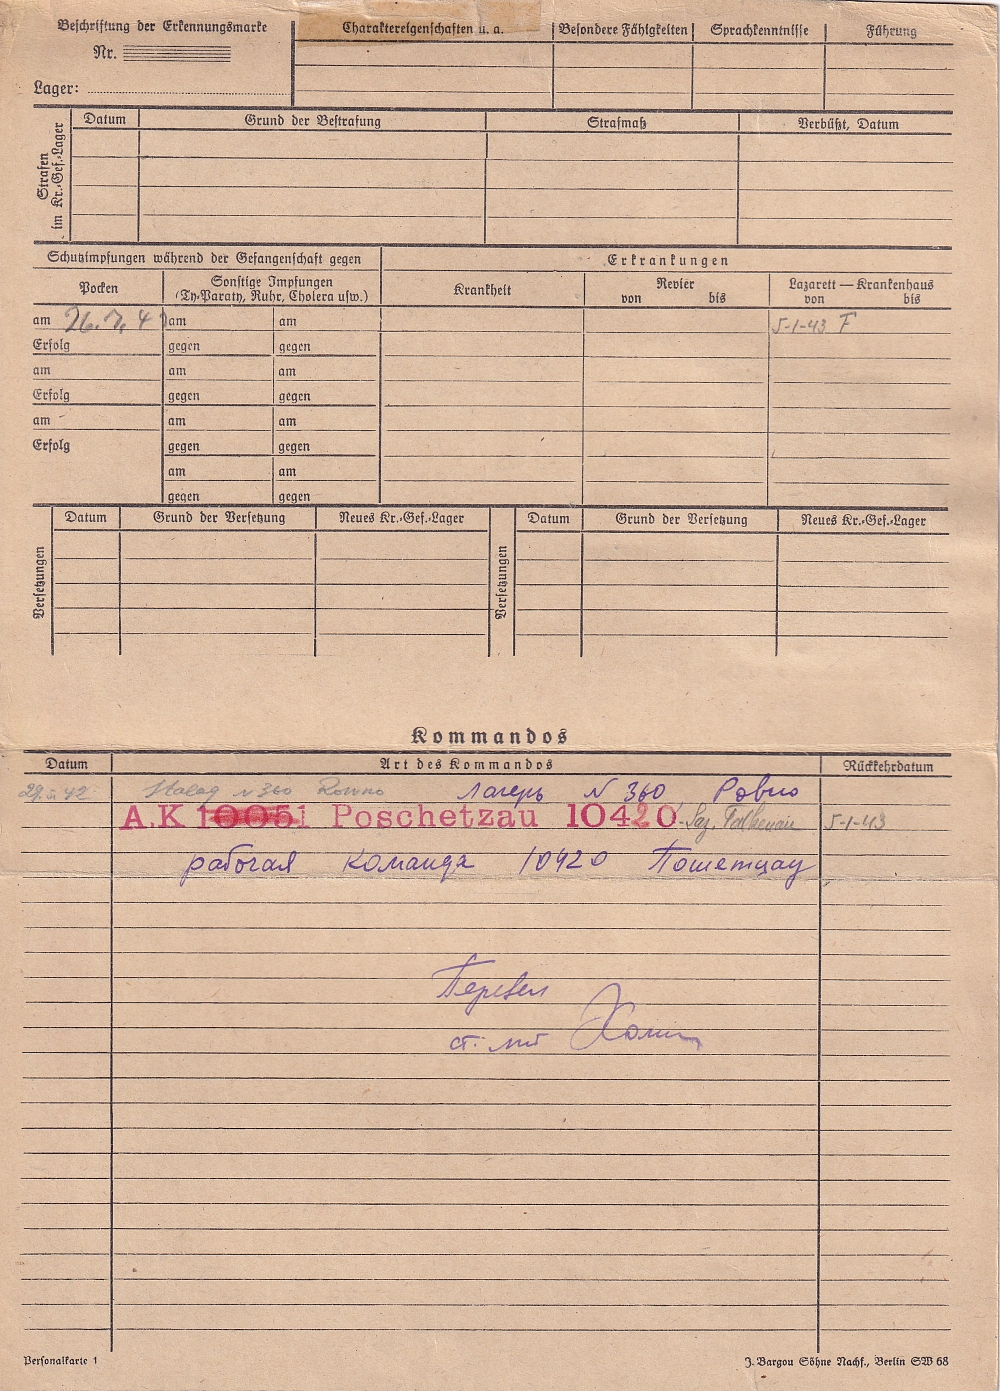 Beschriftung der Erkennungsmarke
Nr.
Lager:
Charaktereigenschaften u. a.
Besondere Fähigkeiten
Sprachkenntnisse
Führung
Strafen im Kr.-Gef.-Lager
Datum
Grund der Bestrafung
Strafmaß
Verbüßt, Datum
Schutzimpfungen während der Gefangenschaft gegen
Erkrankungen
Pocken
Sonstige Impfungen
(Ty.-Paraty, Ruhr, Cholera usw.)
Krankheit
Revier
von bis
Lazarett — Krankenhaus
von bis
am 26. 7. 4 am am 5-1-43 F
Erfolg gegen gegen
am am am
Erfolg gegen gegen
am am am
Erfolg gegen gegen
am am
gegen gegen
Versetzungen
Datum
Grund der Versetzung
Neues Kr.-Gef.-Lager
Versetzungen
Datum
Grund der Versetzung
Neues Kr.-Gef.-Lager
Kommandos
Datum
Art des Kommandos
Rückkehrdatum
Stalag N 360 Rowno лагерь N 360 Ровно
A.K 10051 Poschetzau 10420 Laz. Falkenau 5-1-43
рабочая команда 10420 Пошетцау
Перевел
ст. л-т
Personalkarte 1
J. Bargou Söhne Nachf., Berlin SW 68